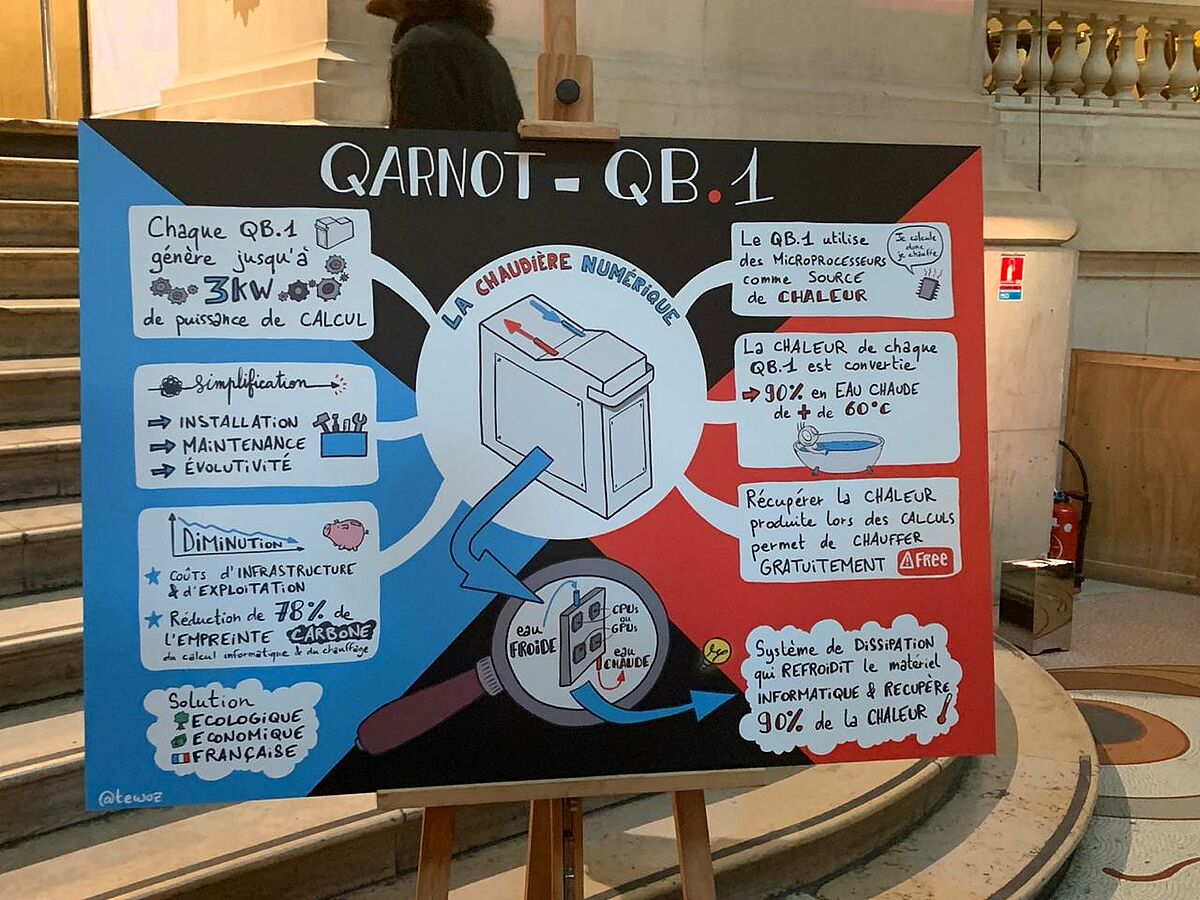 QARNOT - QB.1
Chaque QB.1
génère jusqu'à
3KW
de puissance de CALCUL
simplification
INSTALLATION
MAINTENANCE
ÉVOLUTIVITÉ
DIMINUTION
COÛTS d'INFRASTRUCTURE
& d'EXPLOITATION
Réduction de 78% de
l'EMPREINTE CARBONE
du calcul informatique & du chauffage
Solution
ECOLOGIQUE
ECONOMIQUE
FRANÇAISE
@tewoz
LA CHAUDIÈRE NUMÉRIQUE
eau
FROIDE
CPUs
ou
GPUs
eau
CHAUDE
Le QB.1 utilise
des MICROPROCESSEURS
comme SOURCE
de CHALEUR
Je calcule
donc
je chauffe
La CHALEUR de chaque
QB.1 est convertie
90% en EAU CHAUDE
de + de 60°C
Récupérer la CHALEUR
produite lors des CALCULS
permet de CHAUFFER
GRATUITEMENT FREE
Système de DISSIPATION
qui REFROIDIT le matériel
INFORMATIQUE & RECUPÈRE
90% de la CHALEUR